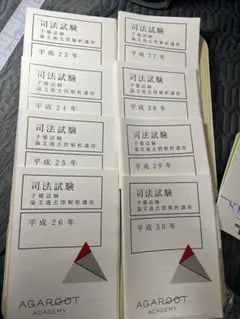 司法試験
予備試験
論文過去問解析講座
平成23年
司法試験
予備試験
論文過去問解析講座
平成24年
司法試験
予備試験
論文過去問解析講座
平成25年
司法試験
予備試験
論文過去問解析講座
平成26年
AGAROOT
ACADEMY
司法試験
予備試験
論文過去問解析講座
平成27年
司法試験
予備試験
論文過去問解析講座
平成28年
司法試験
予備試験
論文過去問解析講座
平成29年
司法試験
予備試験
論文過去問解析講座
平成30年
AGAROOT
ACADEMY